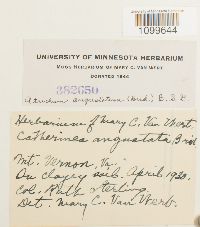 1099644
UNIVERSITY OF MINNESOTA HERBARIUM
MOSS HERBARIUM OF MARY C. VAN WERT
DONATED 1944
382650
Atrichum angustatum (Brid.) B.S.G.
Herbarium of Mary C. Van Wert.
Catherinea angustata, Brid
Mt. Vernon, Va.
On clayey soil. April 1920.
Col. Ruth Sterling
Det. Mary C. Van Wert.